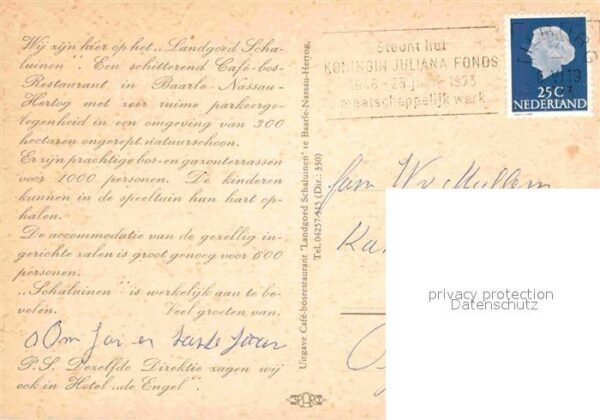 Wij zijn hier op het „Landgoed Scha-
luinen". Een schitterend Café-bos-
Restaurant in Baarle-Nassau-
Hertog met zeer ruime parkeerge-
legenheid in een omgeving van 300
hectaren ongerept natuurschoon.
Er zijn prachtige bos- en gazonterrassen
voor 1000 personen. De kinderen
kunnen in de speeltuin hun hart op-
halen.
De accommodatie van de gezellig in-
gerichte zalen is groot genoeg voor 600
personen.
„Schaluinen" is werkelijk aan te be-
velen. Veel groeten van.
Oom Jos en tante
P.S. Dezelfde Direktie zagen wij
ook in Hotel „de Engel".
Uitgave Café-bosrestaurant "Landgoed Schaluinen" te Baarle-Nassau-Hertog,
Tel. 04257-515 (Dir.: 330)
Steunt het
KONINGIN JULIANA FONDS
1948 - 25 jaar - 1973
maatschappelijk werk
25 C
NEDERLAND
Fam
privacy protection
Datenschutz